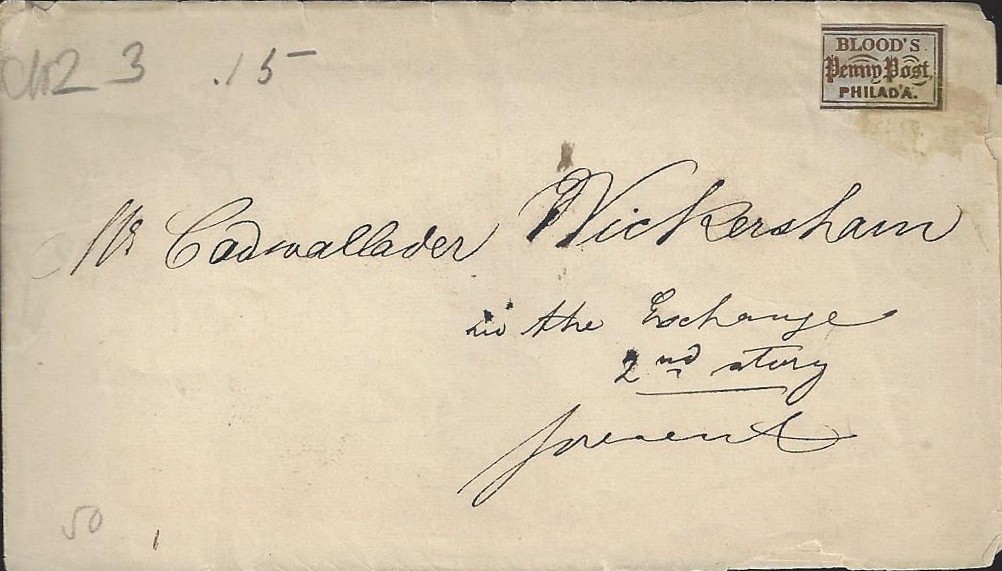 3 .15
BLOOD'S
Penny Post,
PHILAD'A.
Mr Cadwallader Wickersham
in the Exchange
2nd story
present
50